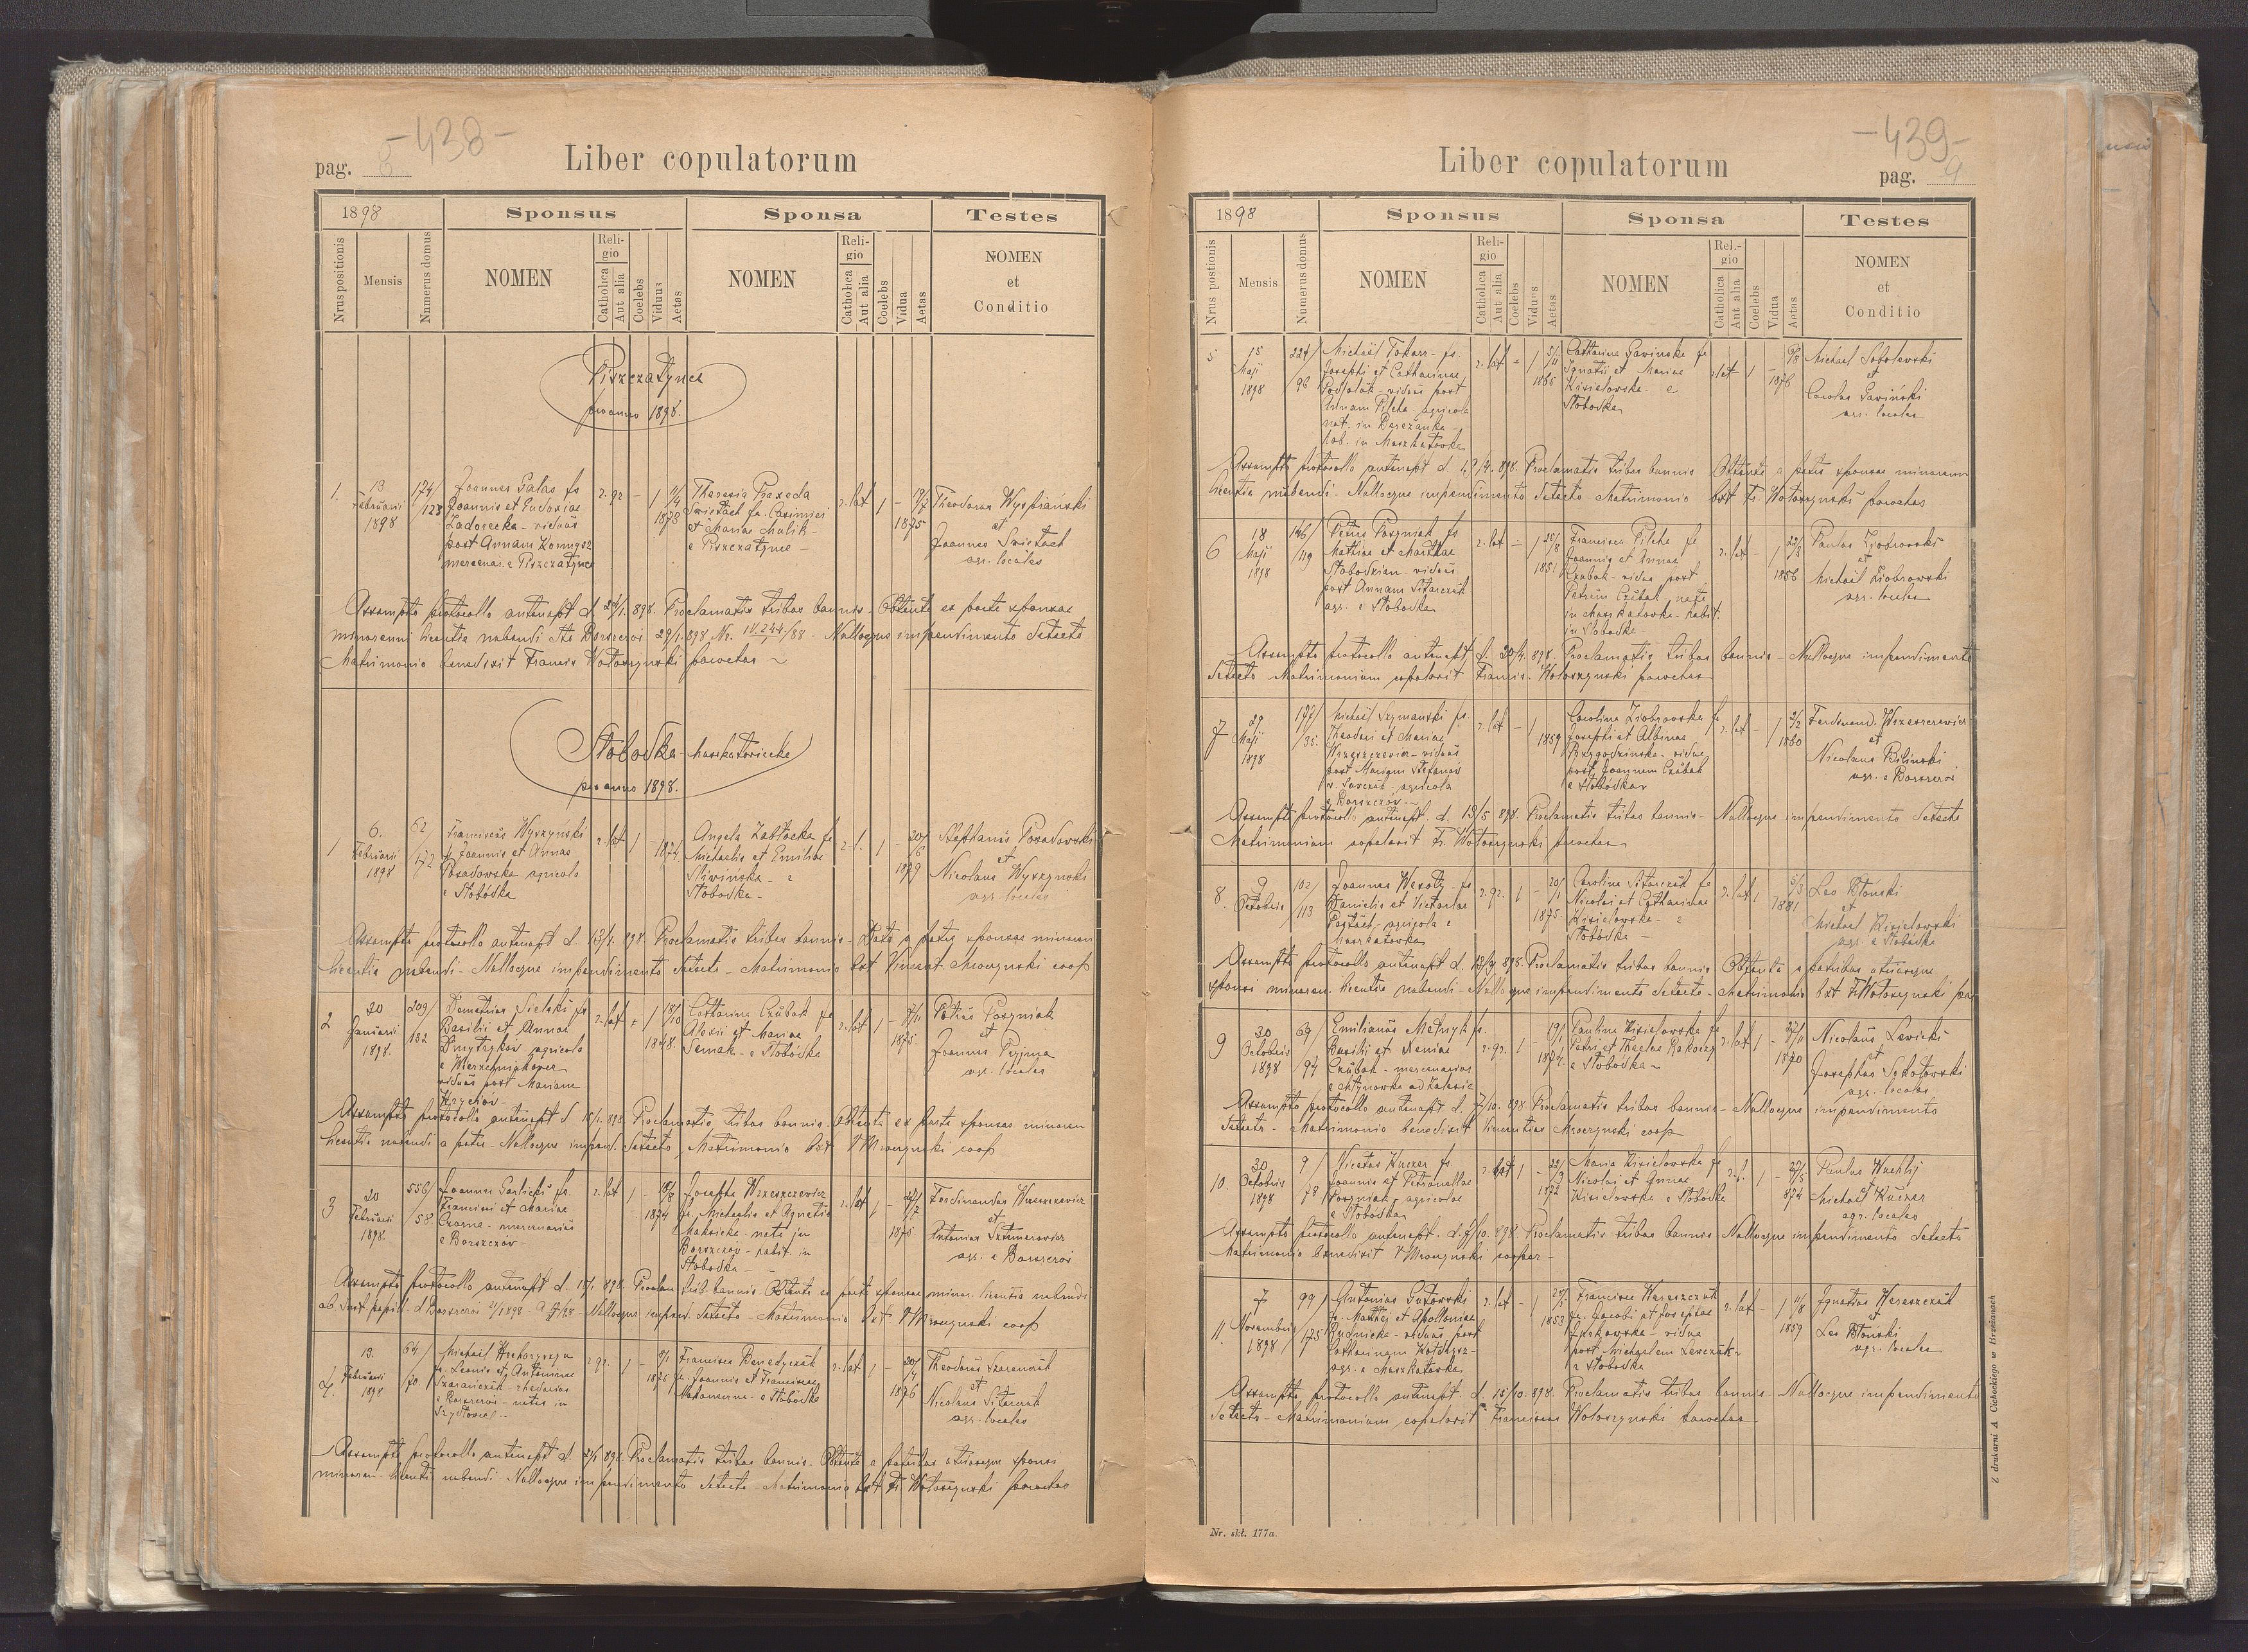 -438-
pag. 8
Liber copulatorum
1898
Sponsus
Sponsa
Testes
Nrus positionis
Mensis
Numerus domus
NOMEN
Religio
Catholica
Aut alia
Coelebs
Viduus
Aetas
NOMEN
Religio
Catholica
Aut alia
Coelebs
Vidua
Aetas
NOMEN
et
Conditio
Piszczatynce
pro anno 1898.
1.
13
Februarii
1898
174/
123
Joannes Galas fs
Joannis et Eudoxiae
Zadorecka - viduus
post Annam
mercenar. e Piszczatynce
r. gr
-
1
1873
Theresia Praxeda
Swistach fa. Casimiri
et Mariae Mulik -
e Piszczatynce -
r. lat
1
-
1875
Theodorus Wyspiański
et
Joannes Swistach
agr. locales
Assumpto protocollo antenupt d. 24/1. 898. Proclamatis tribus bannis - Obtenta ex parte sponsae
minorenni licentia nubendi dto Borszczów 29/1. 898 Nr. IV.244/88 - Nulloque impendimento detecto
Matrimonio benedixit Francis Wołoszynski parochus -
Słobodka - Muszkatowiecka
pro anno 1898.
1
6.
Februarii
1898
62/
172
Franciscus Wyszyński
fs Joannis et Annae
Posadowska agricola
e Słobódka
r. lat
1
-
1874.
Angela Zabłocka fa
Michaelis et Emiliae
Śliwińska - e
Słobodka -
r. l.
1
-
30/6
1879
Stephanus Posadowski
et
Nicolaus Wyszynski
agr. locales
Assumpto protocollo antenupt d. 13/1. 898. Proclamatis tribus bannis - Data a patre sponsae minoren
licentia nubendi - Nulloque impendimento detecto - Matrimonio bxt Vincent. Mroczynski coop
2
30
Januarii
1898.
209/
132
Demetrius Sielski fs
Basilii et Annae
Dmytryków agricola
e Wierzchniakowce
viduus post Mariam
Krzyciów -
r. lat
-
1
18/10
1848.
Catharina Czubak fa
Alexii et Mariae
Semak - e Słobódka
r. lat
1
-
1875.
Petrus Pozgniak
et
Joannes Pryjma
agr. locales
Assumpto protocollo antenupt d 15/1. 898. Proclamatis tribus bannis - Obtenta ex parte sponsae minoren
licentia nubendi a patre - Nulloque impend. detecto, Matrimonio bxt V Mroczynski coop
3
20
Februarii
1898.
556/
58.
Joannes Garlicki fs.
Francisci et Mariae
Czarna - mercenarius
e Borszczów
r. lat
1
-
1874
Josepha Wrzeszczewicz
fa. Michaelis et Agnetis
Makoicka - nata in
Borszczow - habit. in
Słobodka -
r. lat
1
-
1875.
Ferdinandus Wrzeszczewicz
et
Antonius Sztamirowicz
agr. e Borszczów
Assumpto protocollo antenupt d. 15/1. 898. Proclam trib. bannis. Obtenta ex parte sponsae minor. licentia nubendi
Nulloque impend. detecto - Matrimonio bxt. V Mroczynski coop
4.
13.
Februarii
1898
64/
70
Michael
fs. Leonis et Antoninae
Szaranczuk -
e Borszczów - natus in
r gr.
1
-
1875
Francisca Benedyczuk
fa. Joannis et Franciscae
e Słobodka
r. lat
1
-
20/4
1876
Theodorus Szaranczuk
et
Nicolaus Sitarczuk
agr. locales
Assumpto protocollo antenupt d. 24/1 898. Proclamatis tribus bannis. Obtenta a patribus utriusque sponsi
minoren licentia nubendi. Nulloque impendimento detecto - Matrimonio bxt Fr Wołoszynski parochus
-439-
Liber copulatorum
pag. 9
1898
Sponsus
Sponsa
Testes
Nrus postionis
Mensis
Numerus domus
NOMEN
Religio
Catholica
Aut alia
Coelebs
Vidues
Aetas
NOMEN
Rel.-gio
Catholica
Aut alia
Coelebs
Vidua
Aetas
NOMEN
et
Conditio
5
15
Maji
1898
224/
96
Michaël Tokarz - fs.
Josephi et Catharinae
Podpolak viduus post
Annam Pilcha - agricola
nat. in Berezanka -
hab. in Muszkatowka
r. lat
-
1
1865
Catharina Gawinska fa
Ignatii et Mariae
Kisielowska - e
Słobodka
r. lat
1
-
1876
Michael Sobolewski
et
Carolus Gawiński
agr. locales
Assumpto protocollo antenupt d. 12/4. 898. Proclamatis tribus bannis Obtenta a patre sponsae minorenn
licentia nubendi - Nulloque impendimento detecto Matrimonio bxt Fr. Wołoszynski parochus
6
18
Maji
1898
146/
119
Petrus Pozgniak fs
Mathiae et Marthae
Słobodzian - viduus
post Annam Sitarczuk
agr. e Słobodka
r. lat
-
1
25/8
1851
Francisca Pilcha fa
Joannis et Annae
Czubak - vidua post
Petrum Czubak nata
in Muszkatowka - habit.
in Słobodka -
r. lat
-
1
22/3
1856
Paulus Ziobrowski
et
Michaël Ziobrowski
agr. locales
Assumpto protocollo antenupt d. 20/4. 898. Proclamatis tribus bannis - Nulloque impendimento
detecto Matrimonium copulavit Francis. Wołoszynski parochus
7
29
Maji
1898
177/
35.
Michaël Szymański fs.
Theodori et Mariae
Wrzeszczewicz - viduus
post Mariam Stefanów
agricola
e Borszczów -
r. lat
-
1
1859
Carolina Ziobrowska fa
Josephi et Albinae
Przygodzinska - vidua
post Joannem Czubak
e Słobódka
r. lat
-
1
2/2
1860
Ferdinand. Wrzeszczewicz
et
Nicolaus Bilinski
agr. e Borszczów
Assumpto protocollo antenupt. d. 13/5 898. Proclamatis tribus bannis - Nulloque impendimento detecto
Matrimonium copulavit Fr. Wołoszynski parochus
8.
9
Octobris
102/
113
Joannes Wesoły - fs
Danielis et Victoriae
Pastuch - agricola e
Muszkatowka
r. gr.
1
-
20/1
1875.
Carolina Sitarczuk fa
Nicolai et Catharinae
Kisielowska - e
Słobódka -
r. lat
1
-
5/3
1881
Leo Błoński
et
Michael Kisielowski
agr. e Słobódka
Assumpto protocollo antenupt d. 13/9 898. Proclamatis tribus bannis Obtenta a patribus utriusque
sponsi minoren. licentia nubendi - Nulloque impendimento detecto - Matrimonio bxt Fr Wołoszynski par
9
30
Octobris
1898
69/
94
Emilianus Melnyk fs.
Basilii et Xeniae
Czubak - mercenarius
e Młynowka ad Zalesie
r. gr.
1
-
19/1
1874.
Paulina Kisielowska fa
Petri et Theclae Rakoczy
e Słobódka -
r. lat
1
-
1870
Nicolaus Lewicki
et
Josephus Sokołowski
agr. locales
Assumpto protocollo antenupt d. 7/10. 898 Proclamatis tribus bannis - Nulloque impendimento
detecto - Matrimonio benedixit Vincentius Mroczynski coop
10.
30
Octobris
1898
9/
78
Nicetas Kuczer fs
Joannis et Petronellae
Pozgniak, agricolae
e Słobódka
r. lat
1
-
22/9
1872
Maria Kisielowska fa
Nicolai et Annae
Kisielowska e Słobodka
r. l.
1
-
27/5
874
Paulus
Michaël Kuczer
agr. locales
Assumpto protocollo antenupt. d. 7/10. 898. Proclamatis tribus bannis. Nulloque impendimento detecto
Matrimonio benedixit V Mroczynski cooper -
11.
7
Novembris
1898
99/
175
Antonius Gutowski
fs. Matthei et Apolloniae
Rudnicka - viduus post
Catharinam
agr. e Muszkatowka
r. lat
-
1
28/5
1853
Francisca Wereszczuk
fa. Jacobi et Josephae
Jurkowska - vidua
post Michaelem Lewczuk -
e Słobodka
r. lat
-
1
11/8
1859
Ignatius Wereszczuk
et
Leo Błoński
agr. locales
Assumpto protocollo antenupt. d. 15/10. 898. Proclamatis tribus bannis - Nulloque impendimento
detecto - Matrimonium copulavit Franciscus Wołoszynski parochus
Nr. skł. 177a.
Z drukarni A Cichockiego w Brzeżanach